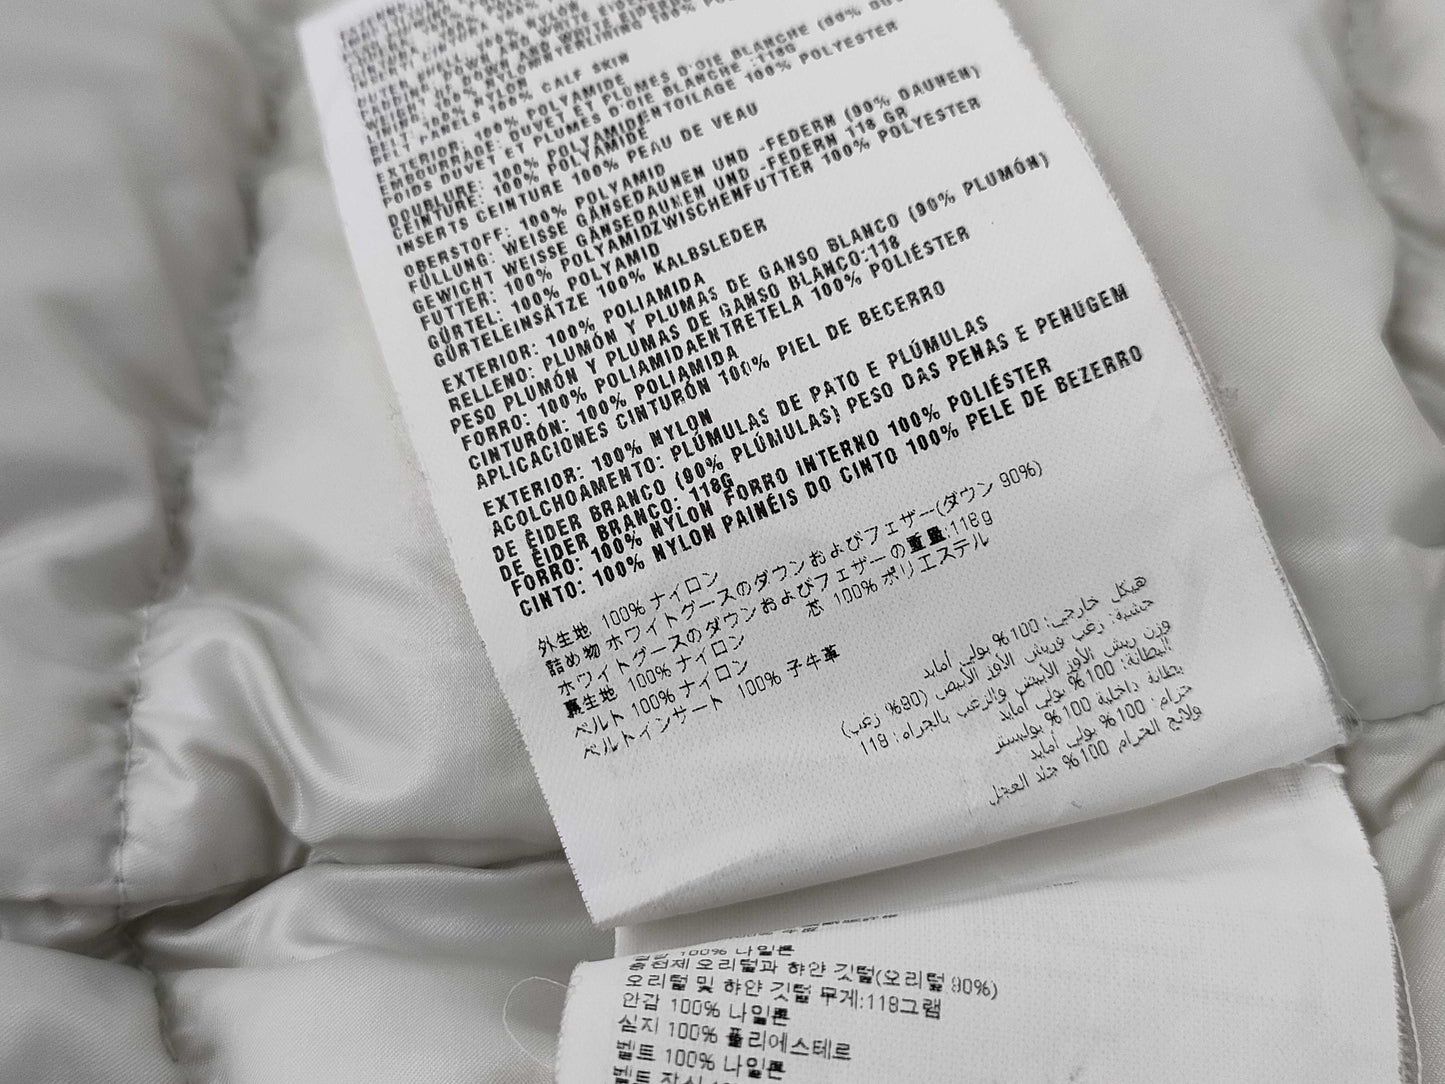 BELT PANELS 100% CALF SKIN
EXTERIOR: 100% POLYAMIDE
EMBOURRAGE: DUVET ET PLUMES D'OIE BLANCHE (90% DUVET
POIDS DUVET ET PLUMES D'OIE BLANCHE :118G
DOUBLURE: 100% POLYAMIDEENTOILAGE 100% POLYESTER
CEINTURE: 100% POLYAMIDE
INSERTS CEINTURE 100% PEAU DE VEAU
OBERSTOFF: 100% POLYAMID
FÜLLUNG: WEISSE GÄNSEDAUNEN UND -FEDERN (90% DAUNEN)
GEWICHT WEISSE GÄNSEDAUNEN UND -FEDERN 118 GR
FUTTER: 100% POLYAMIDZWISCHENFUTTER 100% POLYESTER
GÜRTEL: 100% POLYAMID
GÜRTELEINSÄTZE 100% KALBSLEDER
EXTERIOR: 100% POLIAMIDA
RELLENO: PLUMÓN Y PLUMAS DE GANSO BLANCO (90% PLUMÓN)
PESO PLUMÓN Y PLUMAS DE GANSO BLANCO:118
FORRO: 100% POLIAMIDAENTRETELA 100% POLIÉSTER
CINTURÓN: 100% POLIAMIDA
APLICACIONES CINTURÓN 100% PIEL DE BECERRO
EXTERIOR: 100% NYLON
ACOLCHOAMENTO: PLÚMULAS DE PATO E PLÚMULAS
DE ÊIDER BRANCO (90% PLÚMULAS) PESO DAS PENAS E PENUGEM
DE ÊIDER BRANCO: 118G
FORRO: 100% NYLON FORRO INTERNO 100% POLIÉSTER
CINTO: 100% NYLON PAINÉIS DO CINTO 100% PELE DE BEZERRO
外生地 100% ナイロン
詰め物 ホワイトグースのダウンおよびフェザー(ダウン 90%)
ホワイトグースのダウンおよびフェザーの重量:118g
裏生地 100% ナイロン 芯 100% ポリエステル
ベルト 100% ナイロン
ベルトインサート 100% 子牛革
هيكل خارجي: 100% بولي أمايد
حشية: زغب وريش الأوز الأبيض (90% زغب)
وزن ريش الأوز الأبيض والزغب بالجرام: 118
البطانة: 100% بولي أمايد
بطانة داخلية 100% بوليستر
حزام: 100% بولي أمايد
ولائج الحزام 100% جلد العجل
100% 나일론
충전제 오리털과 하얀 깃털(오리털 90%)
오리털 및 하얀 깃털 무게:118그램
안감 100% 나일론
심지 100% 폴리에스테르
벨트 100% 나일론
벨트